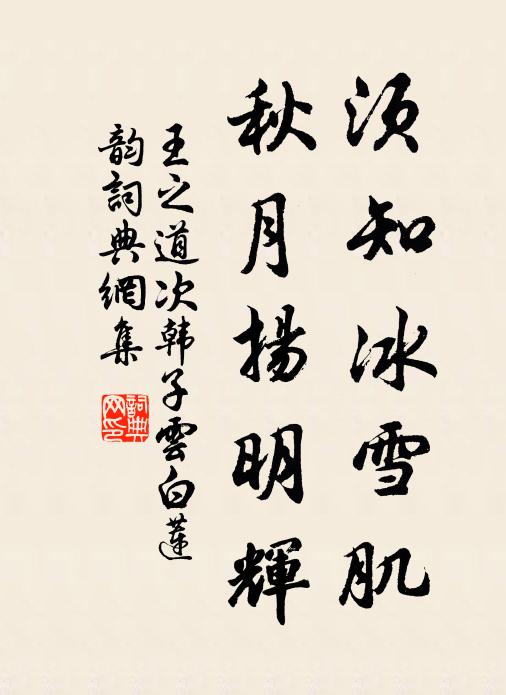 须知冰雪肌
秋月揚明輝
王之道次韩子雲白蓮
韵詞典網集
詞典网印